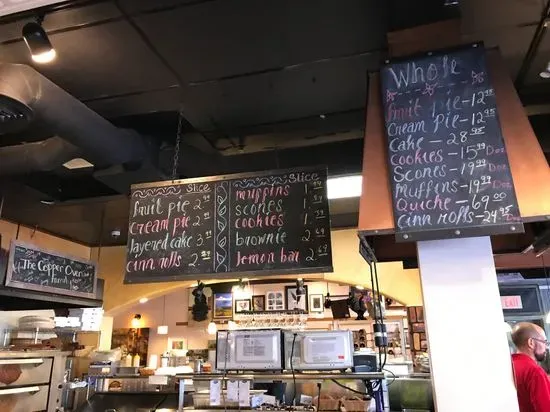 The Copper Oven
Slice
fruit pie 2
cream pie 2
layered cake 3
cinn rolls 2
Slice
muffins 1
scones 1
cookies 1
brownie 2 69
lemon bar 2 69
Whole
fruit pie - 12 95
Cream pie - 12 95
Cake - 28 95
Cookies - 15 99 Doz
Scones - 19 99 Doz
Muffins - 19 99 Doz
Quiche - 69 00
Cinn rolls - 24 95
EXIT